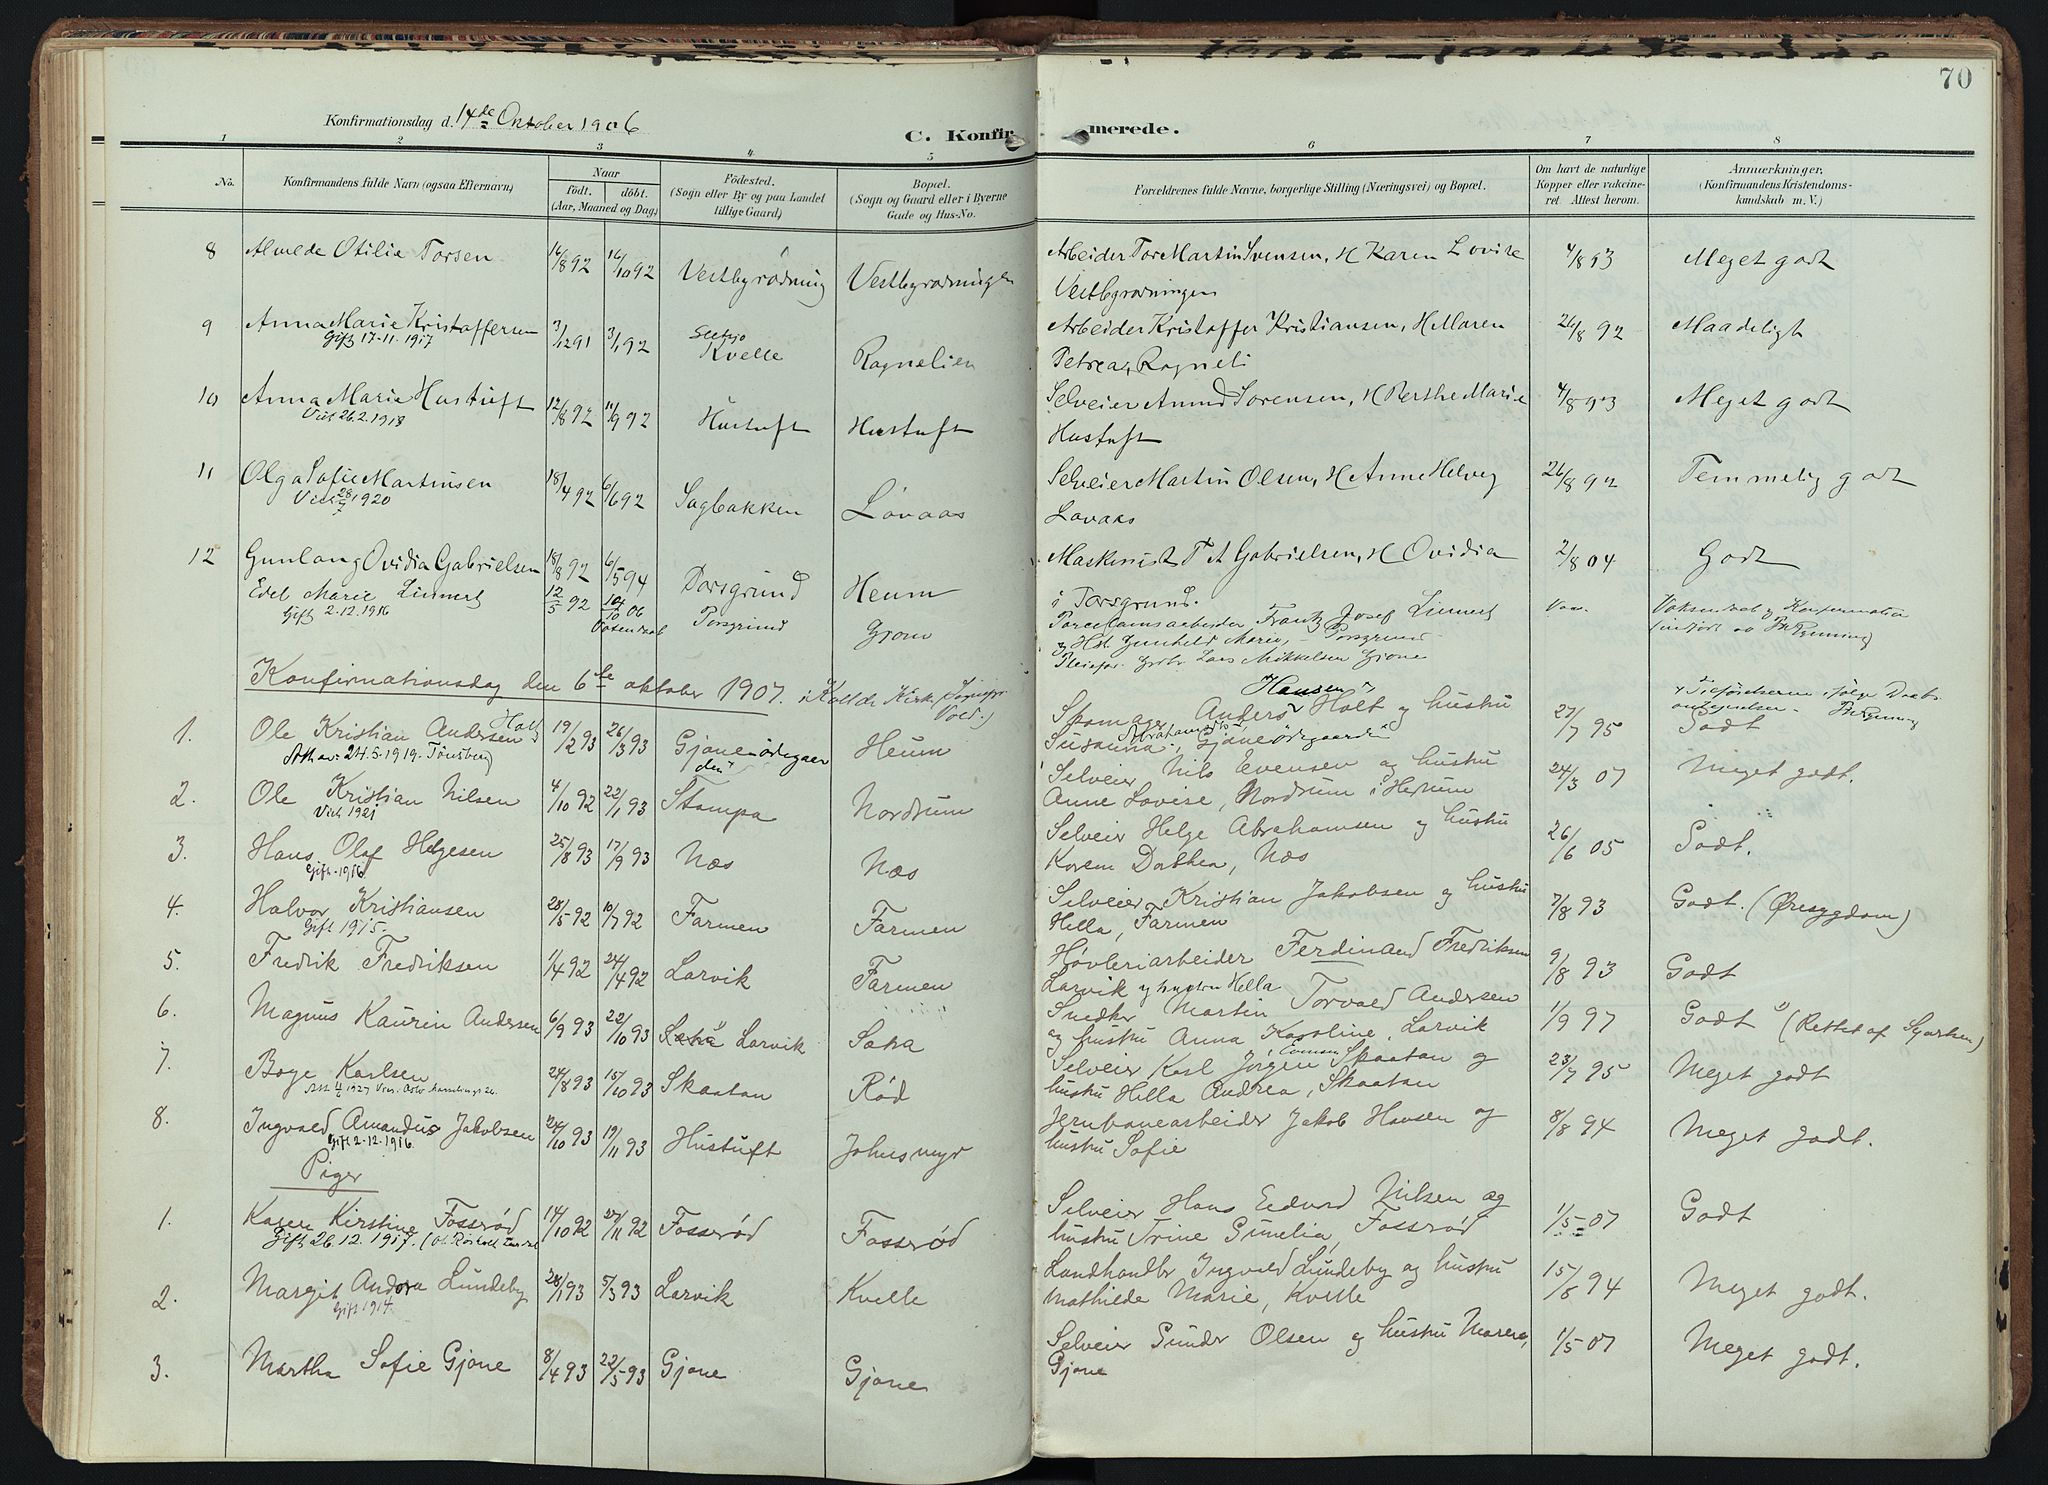 70
Konfirmationsdag d. 14de Oktober 1906
C. Konfirmerede.
1 2 3 4 5 6 7 8
No.
Konfirmandens fulde Navn (ogsaa Efternavn)
Naar
födt. döbt.
(Aar, Maaned og Dag.)
Födested.
(Sogn eller By og paa Landet
tillige Gaard)
Bopæl.
(Sogn og Gaard eller i Byerne
Gade og Hus-No.
Forældrenes fulde Navne, borgerlige Stilling (Næringsvei) og Bopæl.
Om havt de naturlige
Kopper eller vakcine-
ret. Attest herom.
Anmærkninger.
(Konfirmandens Kristendoms-
kundskab m. V.)
8 Almede Otilie Torsen 16/8 92 16/10 92 Vestbyrødning Vestbyrødningen Arbeider Tore Martin Svensen, H Karen Lovise 4/8 93 Meget godt
Vestbyrødningen
9 Anna Marie Kristoffersen 3/12 91 3/1 92 Kvelle Ragnelien Arbeider Kristoffer Kristiansen, H Maren 26/8 92 Maadeligt
Gift 17-11. 1917
Petrea, Ragneli
10 Anna Marie Hustuft 12/8 92 11/9 92 Hustuft Hustuft Selveier Anund Sørensen, H Berthe Marie 4/8 93 Meget godt
Viet 26.2.1918
Hustuft
11 Olga Sofie Martinsen 18/4 92 6/6 92 Sagbakken Løvaas Selveier Martin Olsen, H Anne Helveg 26/8 92 Temmelig godt
Viet 28/7 1920
Løvaas
12 Gunlaug Ovidia Gabrielsen 18/8 92 6/5 94 Porsgrund Heum Maskinist T A Gabrielsen, H Ovidia 2/8 04 Godt
i Porsgrund.
Edel Marie Linnert 12/5 92 10/10 06 Porsgrund Gjone Porcelænsarbeider Frantz Josef Linnert Vacc. Voksendaab og Konfirmation
Gift 2.12.1916
og Hst. Gunhild Marie, Porsgrund
Pleiefor. Grbr. Lars Mikkelsen Gjone
Konfirmationsdag den 6te oktober 1907. i Kvelde Kirke
1. Ole Kristian Andersen Holt 19/2 93 26/3 93 Gjoneødegaarden Heum Skomager Anders Hansen Holt og hustru 27/7 95 Godt
Att. av. 24.5-1919. Tønsberg
Susanna Abrahamsdtr., Gjoneødegaarden
2. Ole Kristian Nilsen 4/10 92 22/1 93 Stampa Nordrum Selveier Nils Evensen og hustru 24/3 07 Meget godt.
Viet 1921
Anne Lovise, Nordrum i Hedrum
3. Hans Olaf Helgesen 25/8 93 17/9 93 Næs Næs Selveier Helge Abrahamsen og hustru 26/6 05 Godt.
Gift-1916.
Karen Dorthea, Næs
4. Halvor Kristiansen 28/5 92 10/7 92 Farmen Farmen Selveier Kristian Jakobsen og hustru 7/8 93 Godt. (Øresygdom)
Gift 1915.
Hella, Farmen
5. Fredrik Fredriksen 1/4 92 24/4 92 Larvik Farmen Høvleriarbeider Ferdinand Fredriksen 9/8 93 Godt
Larvik og hustru Hella
6. Magnus Kaurin Andersen 6/9 93 22/10 93 Larvik Saha Snedker Martin Torvald Andersen 1/9 97 Godt
og hustru Anna Karoline, Larvik
7. Boye Karlsen 24/8 93 15/10 93 Skaatan Rød Selveier Karl Jørgen Evensen Skaatan og 23/7 95 Meget godt
hustru Hella Andrea, Skaatan
8. Ingvald Amandus Jakobsen 24/10 93 19/11 93 Hustuft Johnsmyr Jernbanearbeider Jakob Hansen og 8/8 94 Meget godt.
Gift 2-12.1916.
hustru Sofie
Piger
1. Karen Kirstine Fosserød 14/10 92 27/11 92 Fosserød Fosserød Selveier Hans Edvard Nilsen og 1/5 07 Godt
Gift 26.12.1917.
hustru Trine Gunelia, Fosserød
2. Margit Andora Lundeby 28/1 93 5/3 93 Larvik Kvelle Landhandler Ingvald Lundeby og hustru 15/8 94 Meget godt.
Gift 1914.
Mathilde Marie, Kvelle
3. Martha Sofie Gjone 8/4 93 22/5 93 Gjone Gjone Selveier Gunder Olsen og hustru Maren, 1/5 07 Meget godt.
Gjone